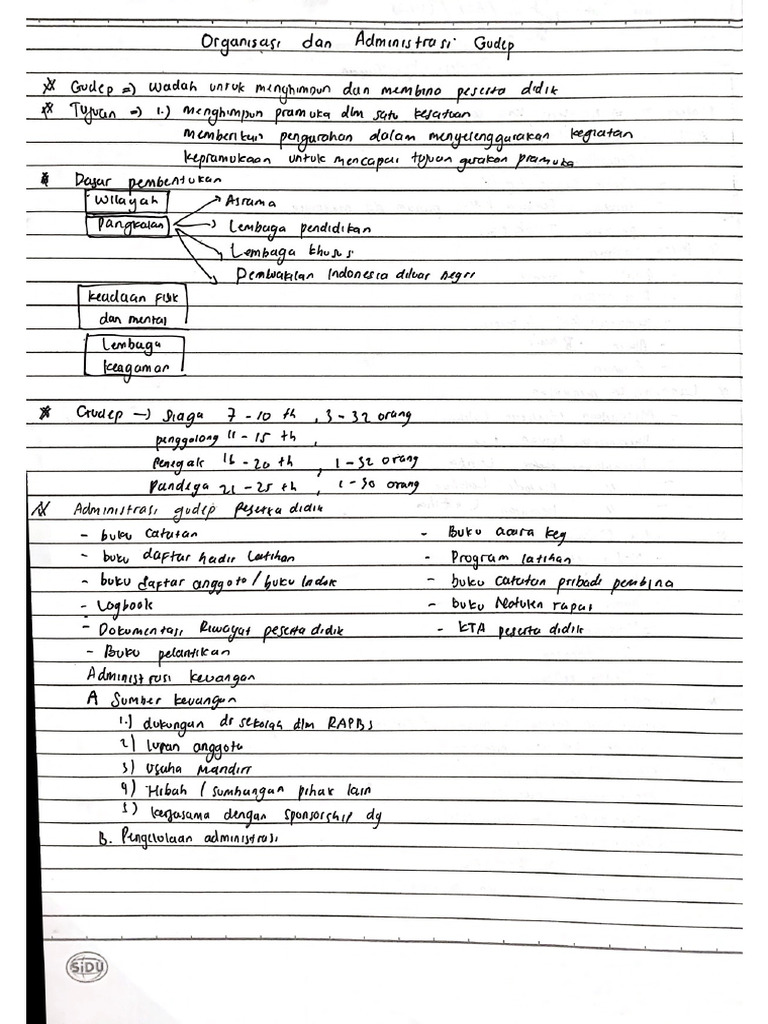 Organisasi dan Administrasi Gudep
Gudep => wadah untuk menghimpun dan membina peserta didik
Tujuan => 1.) menghimpun pramuka dlm satu kesatuan
memberikan pengarahan dalam menyelenggarakan kegiatan
kepramukaan untuk mencapai tujuan gerakan pramuka
Dasar pembentukan
Wilayah
Asrama
Pangkalan
Lembaga pendidikan
Lembaga khusus
Perwakilan Indonesia diluar negri
keadaan fisik
dan mental
Lembaga
keagamaan
Gudep -> Siaga 7 - 10 th , 3 - 32 orang
penggalang 11 - 15 th ,
penegak 16 - 20 th , 1 - 32 orang
Pandega 21 - 25 th , 1 - 30 orang
Administrasi gudep Peserta didik
- buku catatan
- Buku acara keg
- buku daftar hadir latihan
- Program latihan
- buku daftar anggota / buku Induk
- buku catatan pribadi pembina
- Logbook
- buku Notulen rapat
- Dokumentasi Riwayat peserta didik
- KTA peserta didik
- Buku pelantikan
Administrasi keuangan
A Sumber keuangan
1.) dukungan dr sekolah dlm RAPBS
2) Iuran anggota
3) Usaha Mandiri
4) Hibah / sumbangan pihak lain
5) kerjasama dengan sponsorship dg
B. Pengelolaan administrasi
SiDU